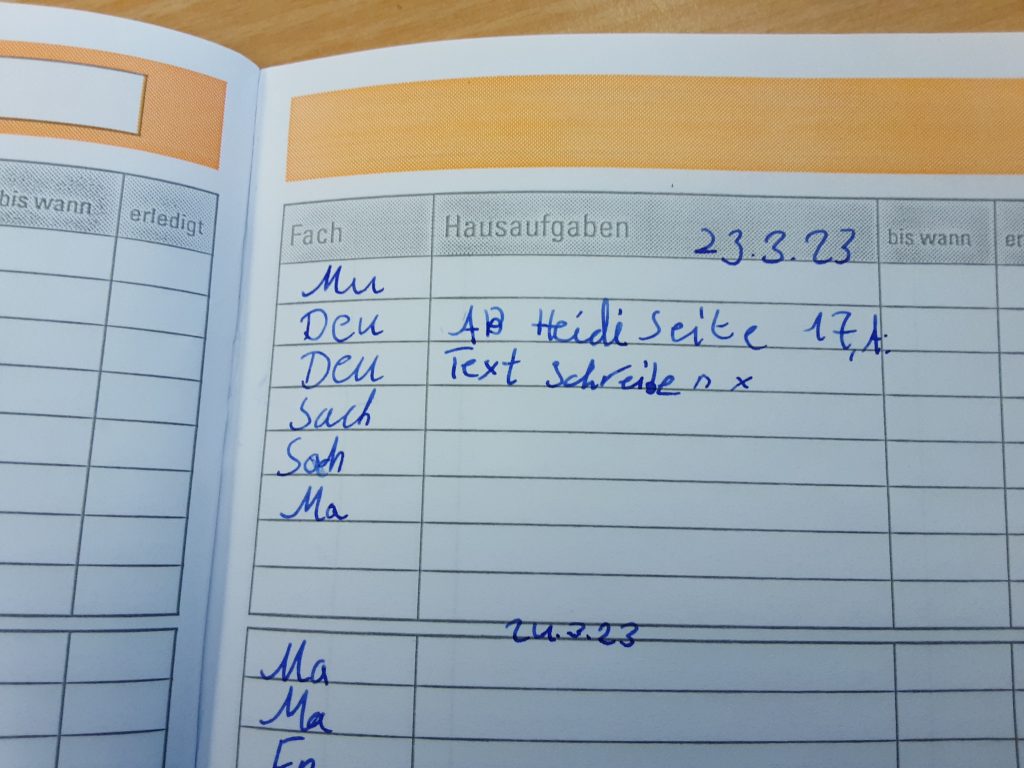 bis wann erledigt
Fach Hausaufgaben 23.3.23 bis wann er
Mu
Deu AB Heidi Seite 17, A:
Deu Text schreiben x
Sach
Sach
Ma
24.3.23
Ma
Ma
En